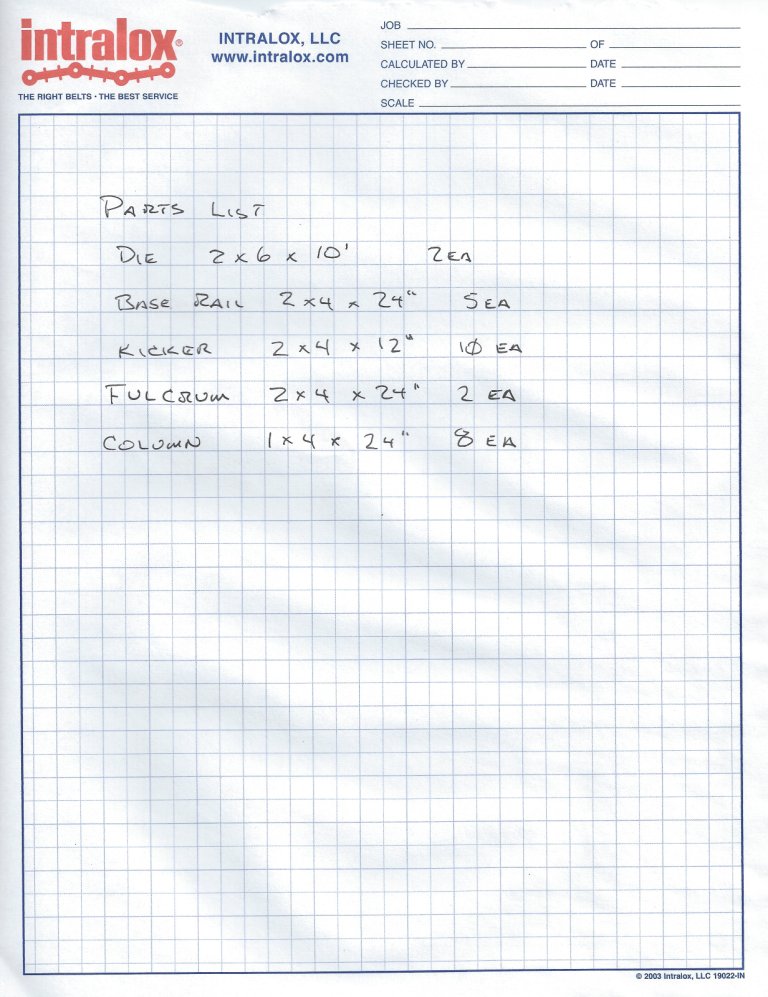 intralox®
THE RIGHT BELTS • THE BEST SERVICE
INTRALOX, LLC
www.intralox.com
JOB
SHEET NO. OF
CALCULATED BY DATE
CHECKED BY DATE
SCALE
PARTS LIST
DIE 2 x 6 x 10' 2 EA
BASE RAIL 2 x 4 x 24" 5 EA
KICKER 2 x 4 x 12" 10 EA
FULCRUM 2 x 4 x 24" 2 EA
COLUMN 1 x 4 x 24" 8 EA
© 2003 Intralox, LLC 19022-IN